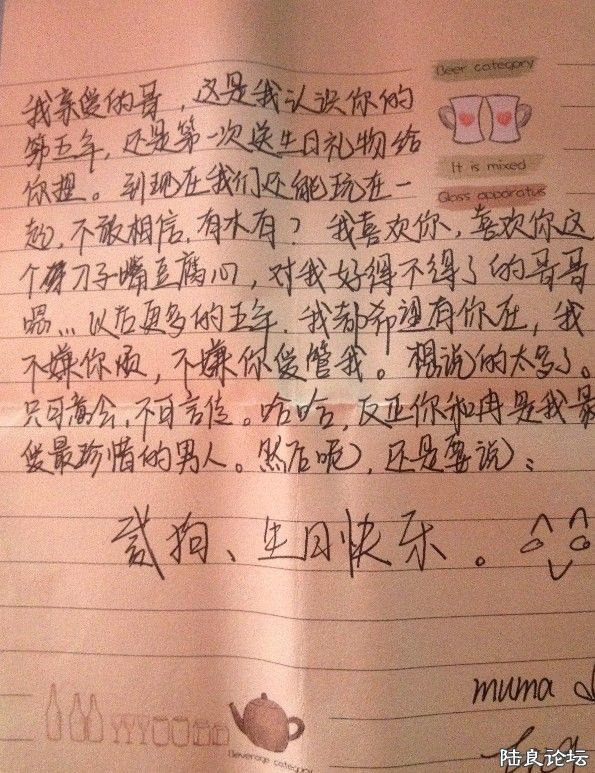 Beer category
我亲爱的哥，这是我认识你的
第五年，还是第一次送生日礼物给
你哩。到现在我们还能玩在一
It is mixed
Glass apparatus
起，不敢相信，有木有？我喜欢你，喜欢你这
个刀子嘴豆腐心，对我好得不得了的哥哥
嗯...以后更多的五年，我都希望有你在，我
不嫌你烦，不嫌你爱管我。想说的太多了。
只可意会，不可言传。哈哈，反正你和冉是我最
爱最珍惜的男人。然后呢，还是要说：
贰狗、生日快乐。
muma
Beverage category
陆良论坛